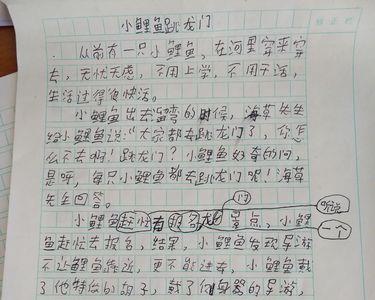 小鲤鱼跳龙门
从前有一只小鲤鱼，在河里穿来穿
去，无忧无虑，不用上学，不用干活，
生活过得很快活。
小鲤鱼出去逛弯的时候，海草先生
给小鲤鱼说：“大家都去跳龙门了，你怎
么不去啊！跳龙门？小鲤鱼好奇的问，
是呀，每只小鲤鱼都去跳龙门呢！海草
先生回答。
门 听说
小鲤鱼赶忙去报名龙景点，小鲤 一个
鱼赶忙去报名，结果，小鲤鱼发现导游
不让鲤鱼靠近，更不能进去，小鲤鱼戴
了他特的胡子，戴了导游，